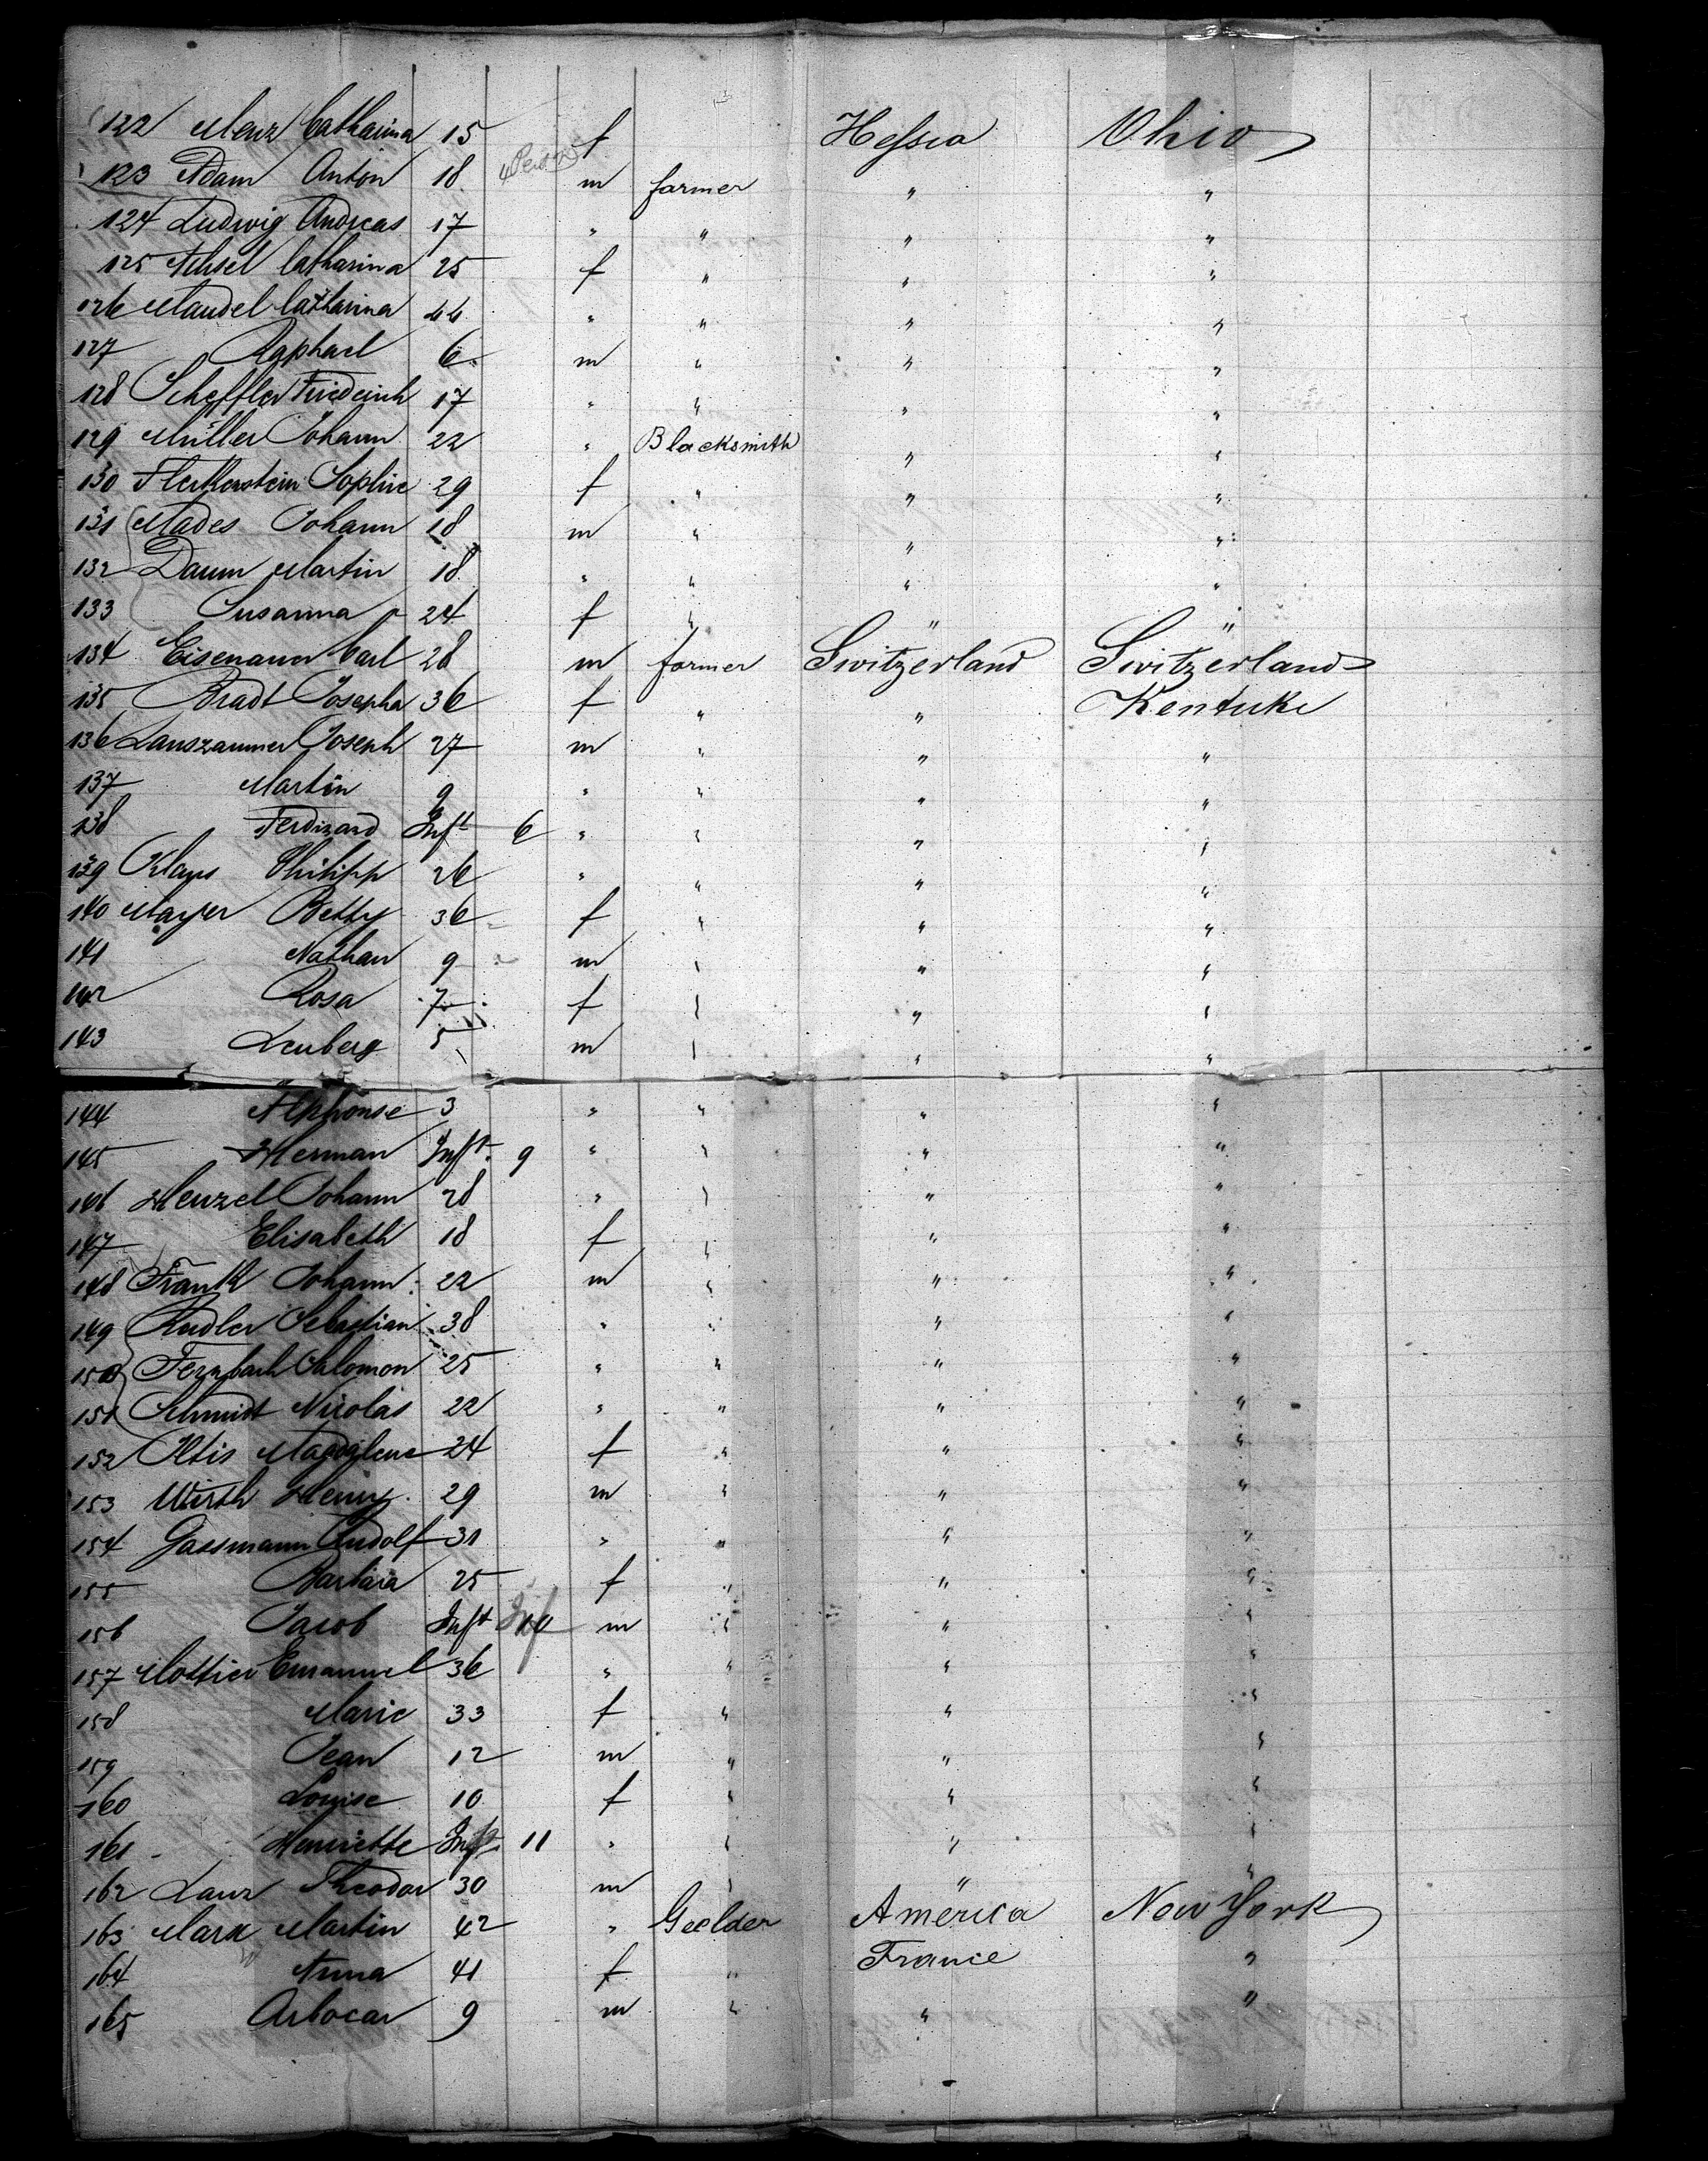 122 Menz Catharina 15 f Hessia Ohio
123 Adam Anton 18 m farmer " "
124 Ludwig Andreas 17 " " " "
125 Achsel Catharina 25 f " " "
126 Mandel Catharina 44 " " " "
127 Raphael 6 m " " "
128 Scheffler Friedrich 17 " " " "
129 Müller Johann 22 " Blacksmith " "
130 Sophie 29 f " " "
131 Mades Johann 18 m " " "
132 Daum Martin 18 " " " "
133 Susanna 24 f " " "
134 Eisenauer Carl 28 m farmer Switzerland Switzerland
135 Bradt Josepha 36 f " " Kentuke
136 Lanszammer Joseph 27 m " " "
137 Martin 9 " " " "
138 Ferdinand Inft 6 " " " "
139 Klays Philipp 26 " " " "
140 Mayer Betty 36 f " " "
141 Nathan 9 m " " "
142 Rosa 7 f " " "
143 Lenberg 5 m " " "
144 Alphonse 3 " " " "
145 Herman Inft. 9 " " " "
146 Henzel Johann 28 " " " "
147 Elisabeth 18 f " " "
148 Frank Johann 22 m " " "
149 Rudler Sebastian 38 " " " "
150 Fernbach Salomon 25 " " " "
151 Schmidt Nicolas 22 " " " "
152 Iltis Magdalene 24 f " " "
153 Wirth Henry 29 m " " "
154 Gassmann Rudolf 31 " " " "
155 Barbara 25 f " " "
156 Jacob Inft 10 m " " "
157 Mottier Emanuel 36 " " " "
158 Marie 33 f " " "
159 Jean 12 m " " "
160 Louise 10 f " " "
161 Henriette Inft. 11 " " " "
162 Lanz Theodor 30 m " " "
163 Marx Martin 42 " Geelder America New York
164 Anna 41 f " France "
165 Arbocar 9 m " " "